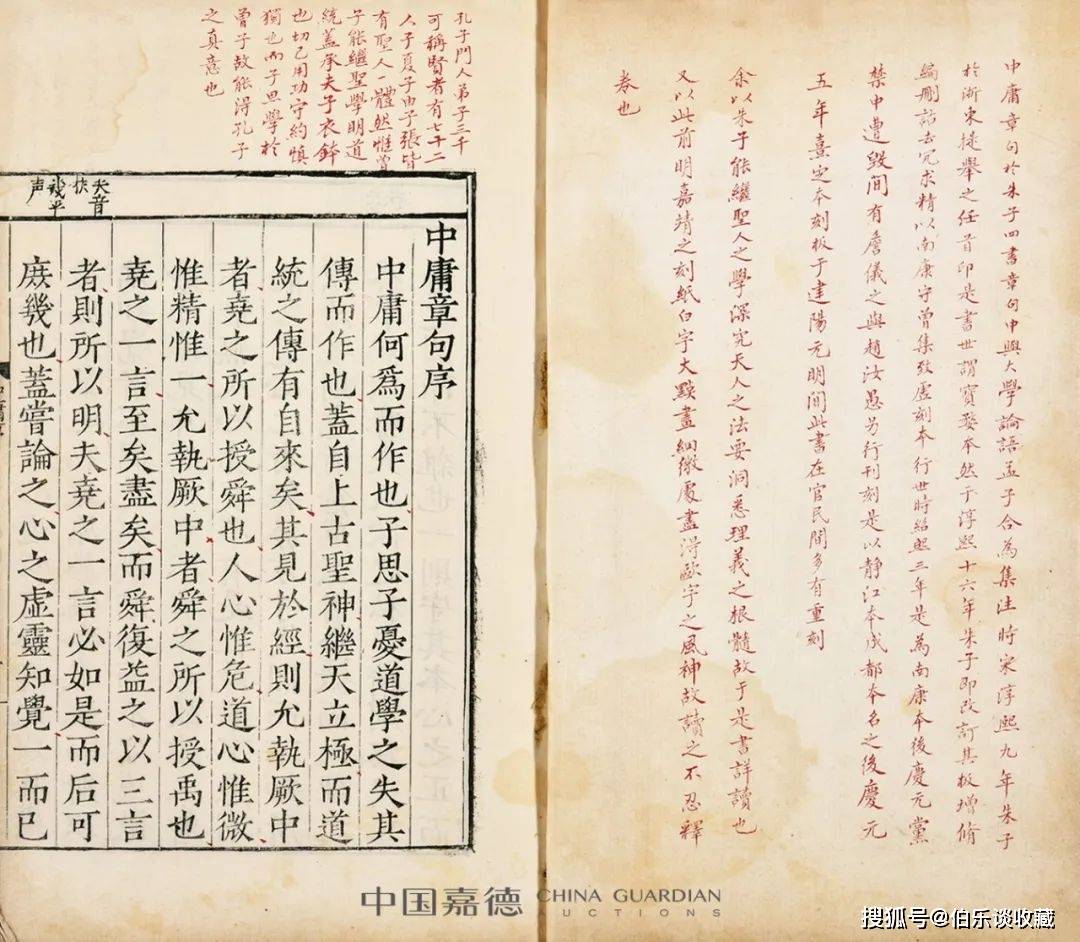 中庸章句於朱子四書章句中與大學論語孟子合為集注時宋淳熙九年朱子
於浙東提舉之任首印是書世謂寶婺本然于淳熙十六年朱子即改訂其板增脩
編刪訪去冗求精以南康守曾集致虛刻本行世時紹熙三年是為南康本後慶元黨
禁中遭毀間有詹儀之與趙汝愚另行刊刻是以靜江本成都本名之後慶元
五年熹定本刻板于建陽元明間此書在官民間多有重刻
余以朱子能繼聖人之學深究天人之法要洞悉理義之根髓故于是書詳讀也
又以此前明嘉靖之刻紙白字大點畫細微處盡得歐字之風神故讀之不忍釋
卷也
孔子門人弟子三千
可稱賢者有七十二
人子夏子由子張皆
有聖人一體然惟曾
子能繼聖學明道
統蓋承夫子衣鉢
也切己用功守約慎
獨也而子思學於
曾子故能得孔子
之真意也
夫音
扶
幾平
声
中庸章句序
中庸何為而作也子思子憂道學之失其
傳而作也蓋自上古聖神繼天立極而道
統之傳有自來矣其見於經則允執厥中
者堯之所以授舜也人心惟危道心惟微
惟精惟一允執厥中者舜之所以授禹也
堯之一言至矣盡矣而舜復益之以三言
者則所以明夫堯之一言必如是而后可
庶幾也蓋嘗論之心之虛靈知覺一而已
中国嘉德 CHINA GUARDIAN
AUCTIONS
搜狐号@伯乐谈收藏